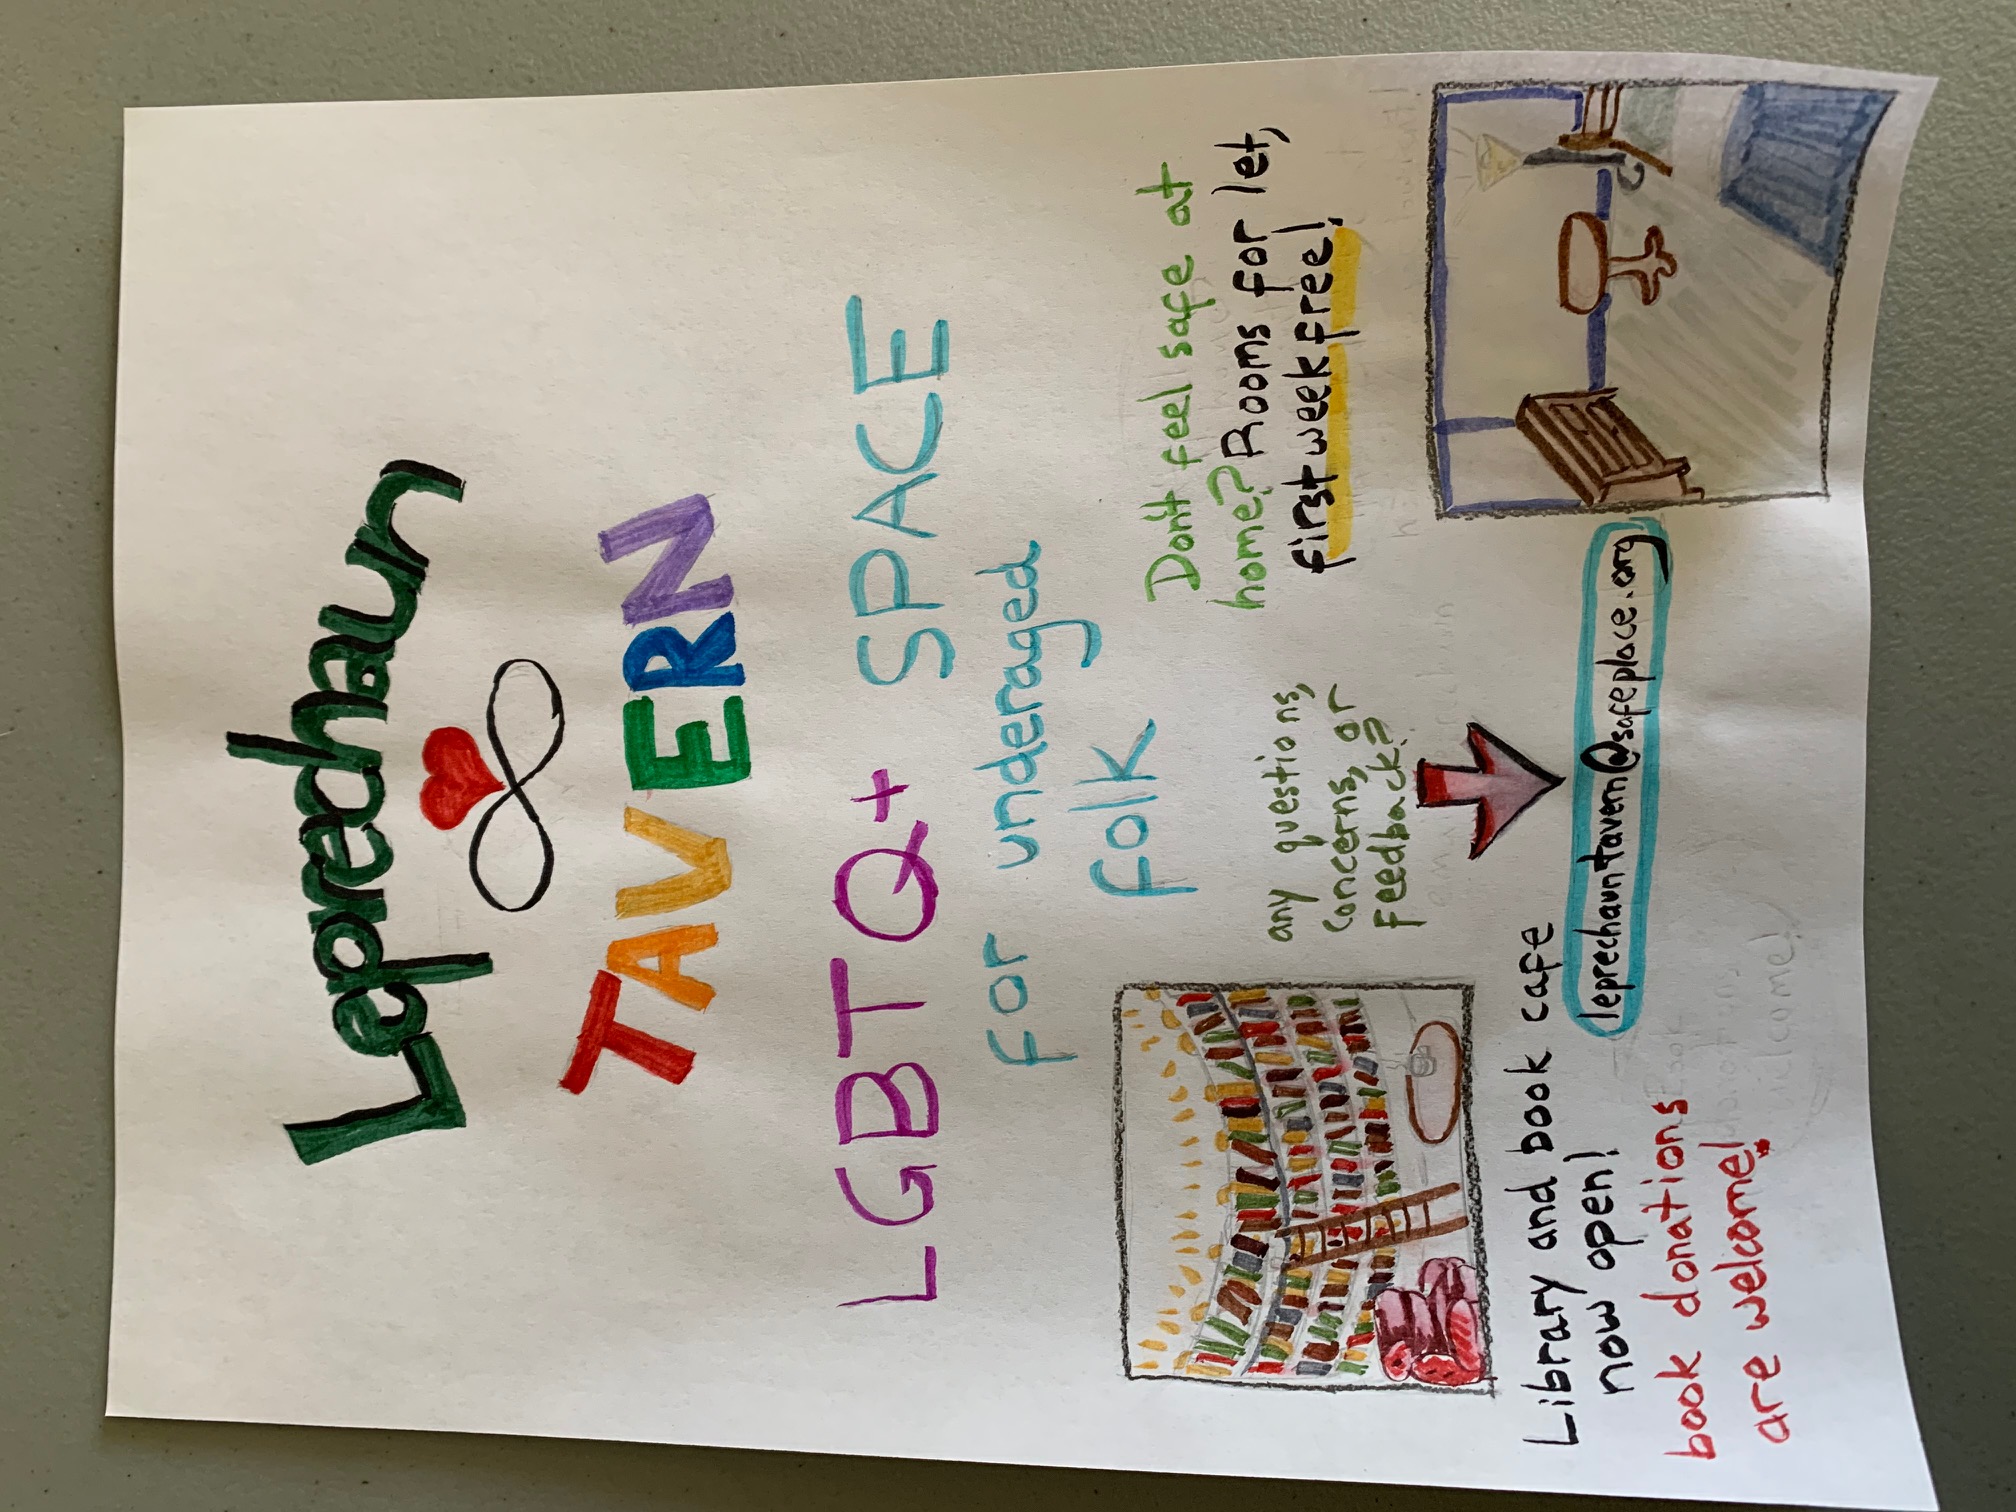 Leprechaun
TAVERN
LGBTQ+ SPACE
for underaged
folk
Don't feel safe at
home? Rooms for let,
first week free!
any questions,
concerns, or
feedback?
leprechauntavern@safeplace.org
Library and book cafe
now open!
book donations
are welcome!